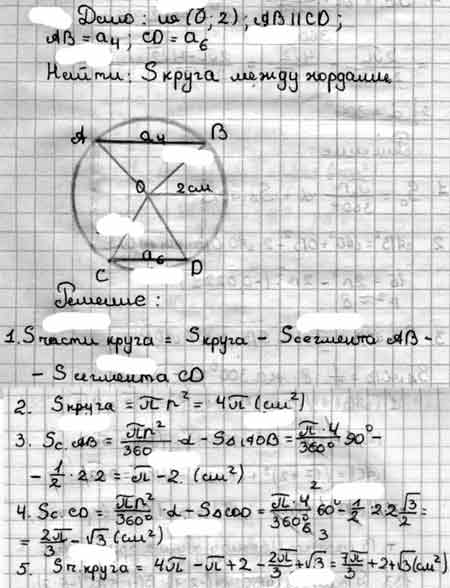 Дано: ω (O; 2); AB || CD;
AB = a₄; CD = a₆
Найти: S круга между хордами
A a₄ B
O 2см
C a₆ D
Решение:
1. S части круга = S круга - S сегмента AB -
- S сегмента CD
2. S круга = πr² = 4π (см²)
3. Sс. AB = πr²/360 · α - S△AOB = π·4/360° 90° -
- 1/2 · 2·2 = π - 2 (см²)
4. Sс. CD = πr²/360° · α - S△COD = π·4²/360°6 60° - 1/2 · 2·2 √3/2 =
= 2π/3 - √3 (см²)
5. Sч. круга = 4π - π + 2 - 2π/3 + √3 = 7π/3 + 2 + √3 (см²)